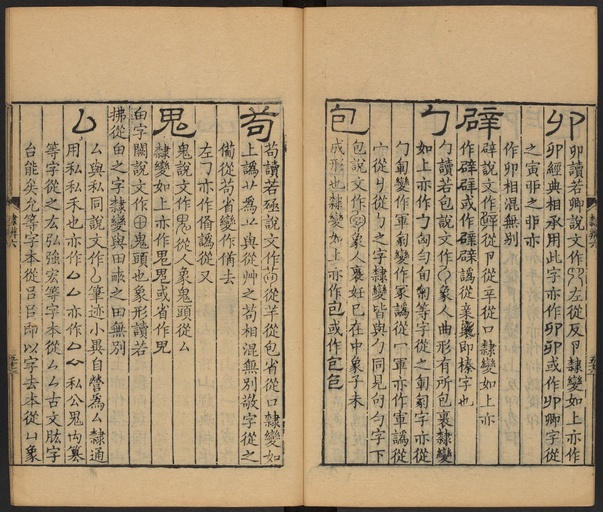 卯 卯讀若卿說文作左從反卪隸變如上亦作
卯經典相承用此字亦作卯卯或作卯卿字從
之寅亦之非亦
作卯相混無別
辟 辟說文作從卪從辛從口隸變如上亦
作辟辟或作辟辟譌從業業即榛字也
勹 勹讀若包說文作象人曲形有所包裹隸變
如上亦作勹匈勻匍匐等字從之匍匐字亦從
勹匍變作軍匍變作冢譌從一軍亦作軍譌從
宀從勹之字隸變皆與勹同見句勻字下
包 包說文作象人褱妊巳在中象子未
成形也隸變如上亦作包或作包包
茍 茍讀若亟說文作茍從羊從包省從口隸變如
上譌為與從艸之苟相混無別敬字從之
僃從茍省變作僃去
左勹亦作僃譌從又
鬼 鬼說文作鬼從人象鬼頭從厶
隸變如上亦作鬼鬼或省作
甶字闕說文作甶鬼頭也象形讀若
拂從甶之字隸變與田畝之田無別
厶 厶與私同說文作筆迹小異自營為厶隸通
用私私禾也亦作厶亦作厶厶私公鬼禸篡
等字從之厷弘強宏等字本從厶厶古文肱字
台能矣允等字本從㠯㠯即以字去本從凵象
隸辨六